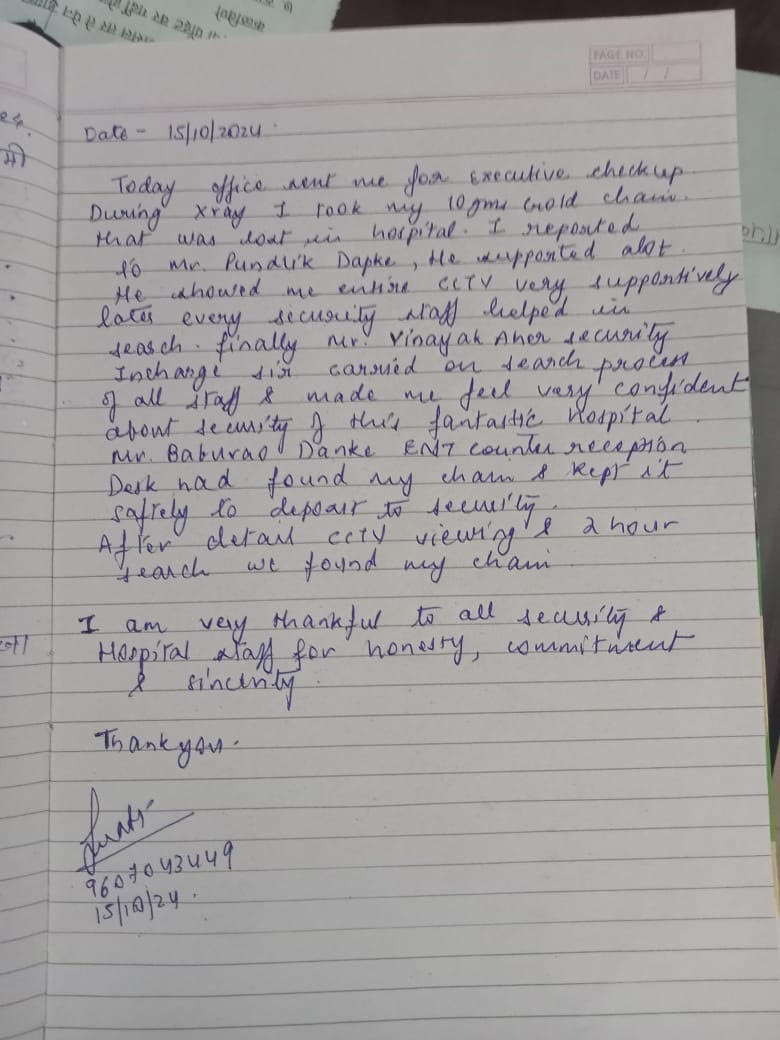 PAGE NO.
DATE / /
Date - 15/10/2024.
Today office sent me for Executive checkup
During xray I took my 10gms Gold chain.
that was lost in hospital. I reported
to Mr. Pundlik Dapke, He supported alot.
He showed me entire CCTV very supportively
later every security staff helped in
search. finally Mr. Vinayak Aher security
Incharge sir carried on search process
of all staff & made me feel very confident
about security of this fantastic Hospital.
Mr. Baburao Danke ENT counter reception
Desk had found my chain & kept it
safrely to deposit to security.
After detail CCTV viewing & 2 hour
search we found my chain.
I am very thankful to all security &
Hospital staff for honesty, commitment
& sincerity.
Thank you.
9607043449
15/10/24.